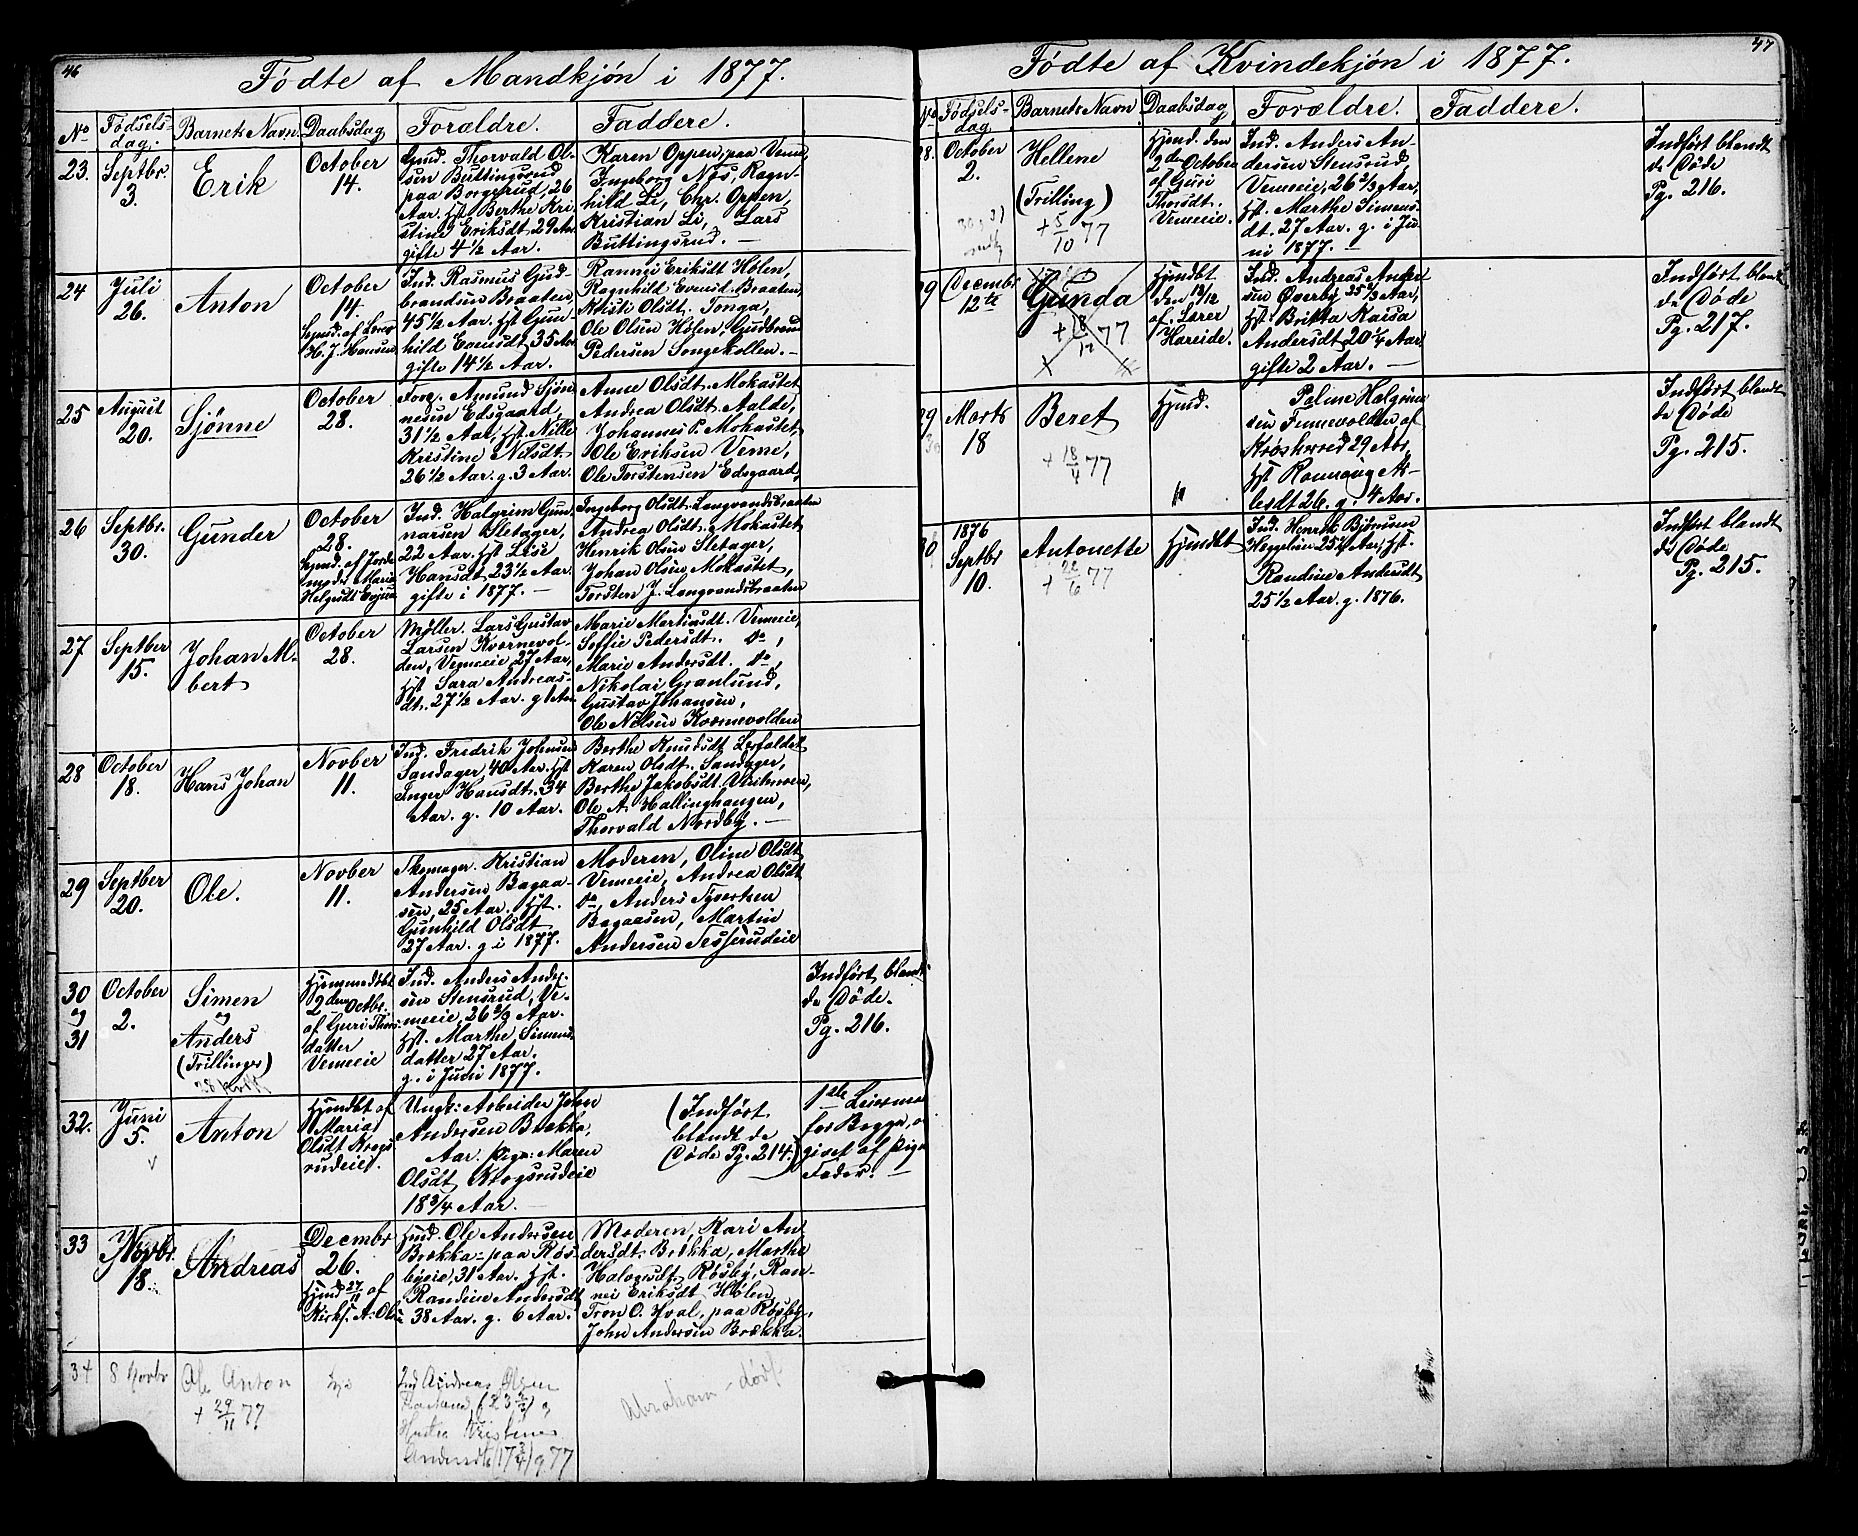 46
Födte af Mandkjön i 1877.
No Födsels-dag. Barnets Navn. Daabsdag Forældre. Faddere.
23. Septbr. 3.
Erik
October 14.
Gmd. Thorvald Ol-
sen Buttingsrud
paa Borgerud, 26
Aar. Hst. Berthe Kri
stine Eriksdt. 29 Aar
gifte 4 1/2 Aar.
Karen Oppen, paa Veme,
Ingeborg Næs, Ragn-
hild Li, Chr. Oppen,
Kristian Li, Lars
Buttingsrud. —
24 Juli 26.
Anton
October 14.
Hjmd. af Lærer
H. J. Hansen
Ind. Rasmus Gud-
brandsen Braaten,
45 1/2 Aar. Hst. Gun
hild Evensdt. 35 Aar
gifte 14 1/2 Aar.
Rannei Eriksdt Hølen,
Ragnhild Evensd. Braaten,
Kristi Olsdt. Tonga,
Ole Olsen Hølen, Gudbrand
Pedersen Songekollen. —
25 August 20.
Sjönne
October 28.
Forp. Amund Sjön
nesen Edsgaard,
31 1/2 Aar, Hst. Nille
Kristine Nilsdt.
26 1/2 Aar. g. 3 Aar.
Anne Olsdt. Mokastet
Andrea Olsdt. Aalde,
Johannes P. Mokastet,
Ole Eriksen Veme,
Ole Torstensen Edsgaard,
26 Septbr. 30.
Gunder
October 28.
Hjmd. af Jorde
mgdr Marie
Helgesdt
Ind. Halgrim Gun
narsen Sletager,
22 Aar. Hst Lise
Hansdt. 23 1/2 Aar.
gifte i 1877. —
Ingeborg Olsdt. Langrandsbraaten
Andrea Olsdt. Mokastet
Henrik Olsen Sletager,
Johan Olsen Mokastet,
Torsten J. Langrandsbraaten
27 Septber 15.
Johan Al-
bert
October 28.
Møller. Lars Gustav
Larsen Kværnevol-
den, Vemeeie 27 Aar,
Hst Sara Andreas-
dt. 27 1/2 Aar. g 1 Aar
Marie Martinsdt. Vemeeie,
Soffie Pedersdt. do,
Marie Andersdt. do,
Nikolai Granlund,
Gustav Johansen,
Ole Nilsen Kværnevolden
28 October 18.
Hans Johan
Novber 11.
Ind. Fredrik Johnsen
Sandager 40 Aar. Hst
Inger Hansdt. 34
Aar. g. 10 Aar.
Berthe Knudsdt Lerfaldet
Karen Olsdt. Sandager,
Berthe Jakobsdt
Ole A. Hallinghaugen,
Thorvald Nordby. —
29 Septber 20.
Ole.
Novber 11.
Skomager. Kristian
Andersen Bagaa-
sen, 25 Aar. Hst.
Gunhild Olsdt
27 Aar. g i 1877.
Moderen, Oline Olsdt
Vemeeie, Andrea Olsdt
do, Anders Syversen
Bagaasen, Martin
Andersen Tesserudeie
30 og 31 October 2.
Simen
og
Anders
(Trillinger)
Hjemmedøbt
2den Octbr.
af Guri Thors-
datter
Vemeeie
Ind. Anders Ander-
sen Stensrud, Ve-
meeie, 26 2/3 Aar.
Hst. Marthe Simens
datter 27 Aar.
g. i Juni 1877.
Indfört blandt
de Døde.
Pg. 216.
32. Juni 5.
Anton
Hjmdbt af
Maria
Olsdt Krogs
rudeie.
Ungk: Arbeider John
Andersen Brækka,
Aar. Pige: Maren
Olsdt Krogsrudeie
18 3/4 Aar.
(Indfört
blandt de
Døde Pg. 214.)
1ste Leierma
for Begge, o
givet af Pige
Fader. —
33 Novbr. 18.
Andreas
Decembr 26.
Hjmd 27/11 af
Kirks. A. Olsen
Hmd. Ole Andersen
Brækka - paa Røs-
byeie, 31 Aar. Hst.
Randine Andersdt
38 Aar. g. 6 Aar.
Moderen, Kari An
dersdt. Brækka, Marthe
Halvorsdt. Røsby, Ran-
nei Eriksdt Hølen,
Tron O. Hval, paa Røsby,
John Andersen Brækka.
34 8 Novbr
Ole Anton
+ 29/11 77
Ind Andreas Olsen
Hustru Kristine
Andersdt (17 3/4) g 77
Abraham - död
47
Födte af Kvindekjön i 1877.
No Födsels-dag Barnets Navn Daabsdag Forældre. Faddere.
28. October 2.
Hellene
(Trilling)
+ 5/10 77
Hjmd. den
2den October
af Guri
Thorsdt.
Vemeeie.
Ind. Anders An-
dersen Stensrud,
Vemeeie, 26 2/3 Aar,
Hst. Marthe Simens
dt. 27 Aar. g. i Ju
ni 1877. —
Indfört blandt
de Døde
Pg. 216.
29 Decembr 12te
Gunda
+ 18/12 77
Hjmdbt
den 13/12
af Lærer
Hareide.
Ind. Andreas Ander
sen Øverby 35 2/3 Aar,
Hst. Britta Kaisa
Andersdt. 20 1/4 Aar
gifte 2 Aar. —
Indfört blandt
de Døde
Pg. 217.
29 Marts 18
Beret
+ 18/4 77
Hjmd.
Palme Halgrim
sen Finnevolden af
Krøskred 29 Aar,
Hst Rannoug As-
lesdt 26. g. 4 Aar.
Indfört blandt
de Døde
Pg. 215.
30 1876 Septbr 10.
Antonette
+ 22/6 77
Hjmdbt
Ind. Henrik Björnsen
Heggelien 25 1/4 Aar, Hst.
Randine Andersdt
25 1/2 Aar. g. 1876.
Indfört blandt
de Døde
Pg. 215.